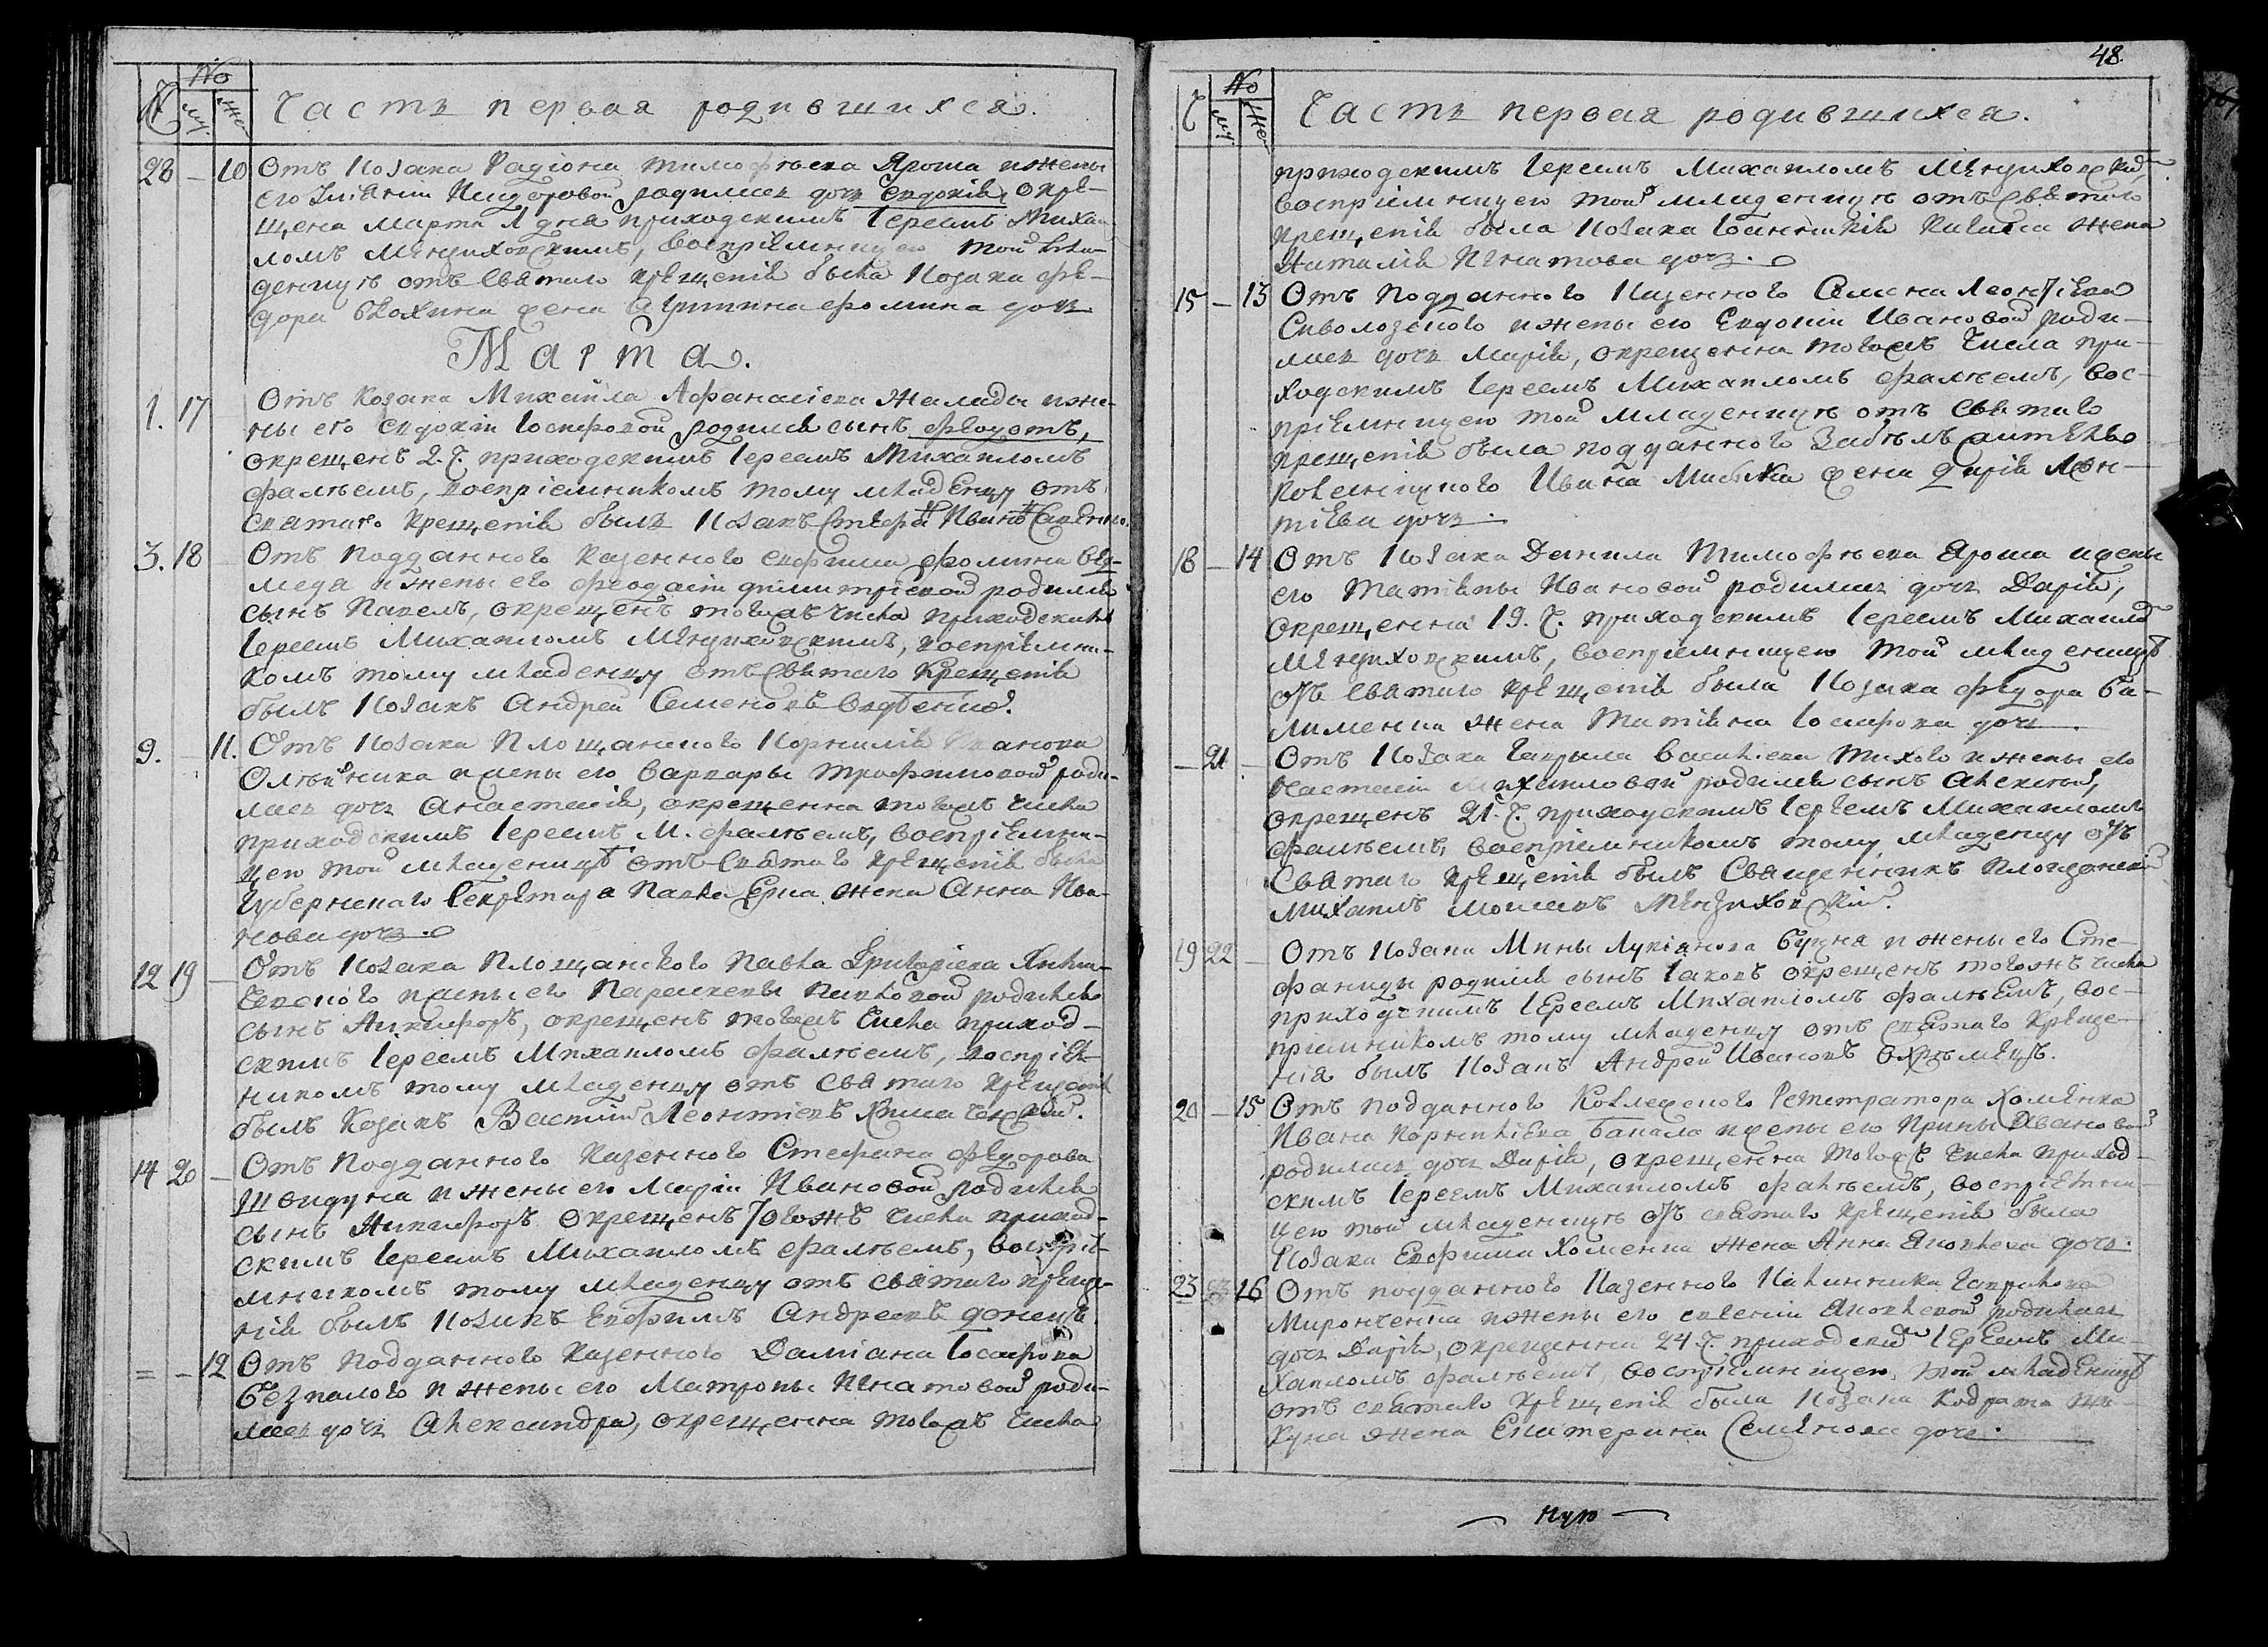 №
Ч Му. Же
Часть первая родившихся.
28 – 10 Отъ Козака Радіона Тимофѣева Яроша и жены
его Сидоровой родилась дочь Евдокія, окре-
щена Марта 1 дня приходскимъ Іереемъ Михаи-
ломъ Мѣнзиховскимъ, воспріемницею той мла-
денцу отъ святаго крещенія была Козака Фе-
дора жена Фомина дочь
Марта.
1. 17 Отъ Козака Михайла Афанасіева Жалады и же-
ны его Евдокіи Іосифовой родился сынъ Федотъ,
окрещенъ 2. Ч. приходскимъ Іереемъ Михаиломъ
Фалѣемъ, воспріемникомъ тому младенцу отъ
святаго крещенія былъ Козакъ Стефанъ Ивановъ
3. 18 Отъ подданного казенного Евфима Фомина
и жены его Феодосіи Димитріевой родился
сынъ Павелъ, окрещенъ тогожъ числа приходскимъ
Іереемъ Михаиломъ Мѣнзиховскимъ, воспріемни-
комъ тому младенцу отъ святаго крещенія
былъ Козакъ Андрей Семеновъ
9. – 11. Отъ Козака Площанского Корнилія Иванова
Олѣйника и жены его Варвары Трофимовой роди-
лась дочь Анастасія, окрещенна тогожъ числа
приходскимъ Іереемъ М. Фалѣемъ, воспріемни-
цею той младеницѣ отъ святаго крещенія была
Губернскаго Секретаря Павла жена Анна Ива-
нова дочь.
12 19 – Отъ Козака Площанского Павла Григоріева
и жены его Параскевы Павловой родился
сынъ Никифоръ, окрещенъ тогожъ числа приход-
скимъ Іереемъ Михаиломъ Фалѣемъ, воспріем-
никомъ тому младенцу отъ святаго крещенія
былъ Козакъ Василій Леонтіевъ
14 20 – Отъ подданного казенного Стефана Федорова
Шовдуна и жены его Маріи Ивановой родился
сынъ Никифоръ окрещенъ тогожъ числа приход-
скимъ Іереемъ Михаиломъ Фалѣемъ, воспріе-
мникомъ тому младенцу отъ святаго креще-
нія былъ Козакъ Евфимъ Андреевъ Донецъ
= – 12 Отъ подданного казенного Даміана Іосифова
Безпалого и жены его Матроны Игнатовой роди-
лась дочь Александра, окрещенна тогожъ числа
48.
№
Ч Му Же
Часть первая родившихся.
приходскимъ Іереемъ Михаиломъ Мѣнзиховским,
воспріемницею той младеницѣ отъ святаго
крещенія была Козака Іоанникія жена
Наталія Игнатова дочь.
15 – 13 Отъ подданного казенного Семена Леонтіева
Сиволозского и жены его Евдокіи Ивановой роди-
лась дочь Марія, окрещенна тогожъ числа при-
ходскимъ Іереемъ Михаиломъ Фалѣемъ, вос-
пріемницею той младеницѣ отъ святаго
крещенія была подданного
Ивана жена Дарія Леон-
тіева дочь.
18 – 14 Отъ Козака Данила Тимофѣева Яроша и жены
его Татіяны Ивановой родилась дочь Дарія,
окрещенна 19. Ч. приходскимъ Іереемъ Михаилом
Мѣнзиховскимъ, воспріемницею той младеницѣ
отъ святаго крещенія была Козака Федора
жена Татіяна Іосифова дочь.
– 21 – Отъ Козака Гаврыла Василіева Тихого и жены его
Настасіи Михаиловой родился сынъ Алексѣй,
окрещенъ 21. Ч. приходскимъ Іереемъ Михаиломъ
Фалѣемъ, воспріемникомъ тому младенцу отъ
святаго крещенія былъ Священникъ Площанскій
Михаилъ Моисеевъ Мѣнзиховскій.
19 22 – Отъ Козака Мины Лукіянова и жены его Сте-
фаниды родился сынъ Іаковъ окрещенъ тогожъ числа
приходскимъ Іереемъ Михаиломъ Фалѣемъ, вос-
пріемникомъ тому младенцу отъ святаго креще-
нія былъ Козакъ Андрей Ивановъ Охрѣмецъ.
20 – 15 Отъ подданного Колежского Регистратора Хоменка
Ивана Корниліева и жены его Ирины Ивановой
родилась дочь Дарія, окрещенна тогожъ числа приход-
скимъ Іереемъ Михаиломъ Фалѣемъ, воспріемни-
цею той младеницѣ отъ святаго крещенія была
Козака Евфима Хоменка жена Анна Яковлева дочь.
23 – 16 Отъ подданного казенного Калинника Гаврилова
Миронченка и жены его Евгеніи Яковлевой родилась
дочь Дарія, окрещенна 24. Ч. приходским Іереемъ Ми-
хаиломъ Фалѣемъ, воспріемницею той младеницѣ
отъ святаго крещенія была Козака Кодрата
жена Екатерина Семенова дочь.